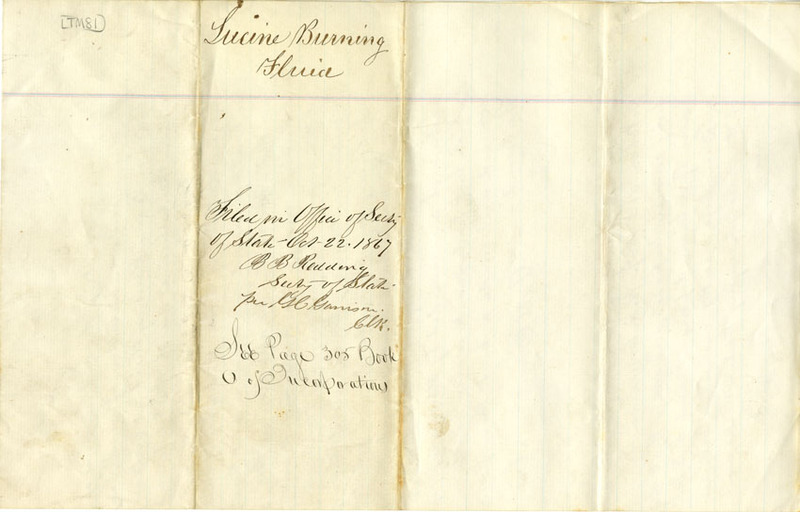 [TM81]
Lucine Burning
Fluid
Filed in Office of Secty
of State Oct 22. 1867
B B Redding
Secty of State
per Garrison.
Clk.
See Page 305 Book
of Incorporations